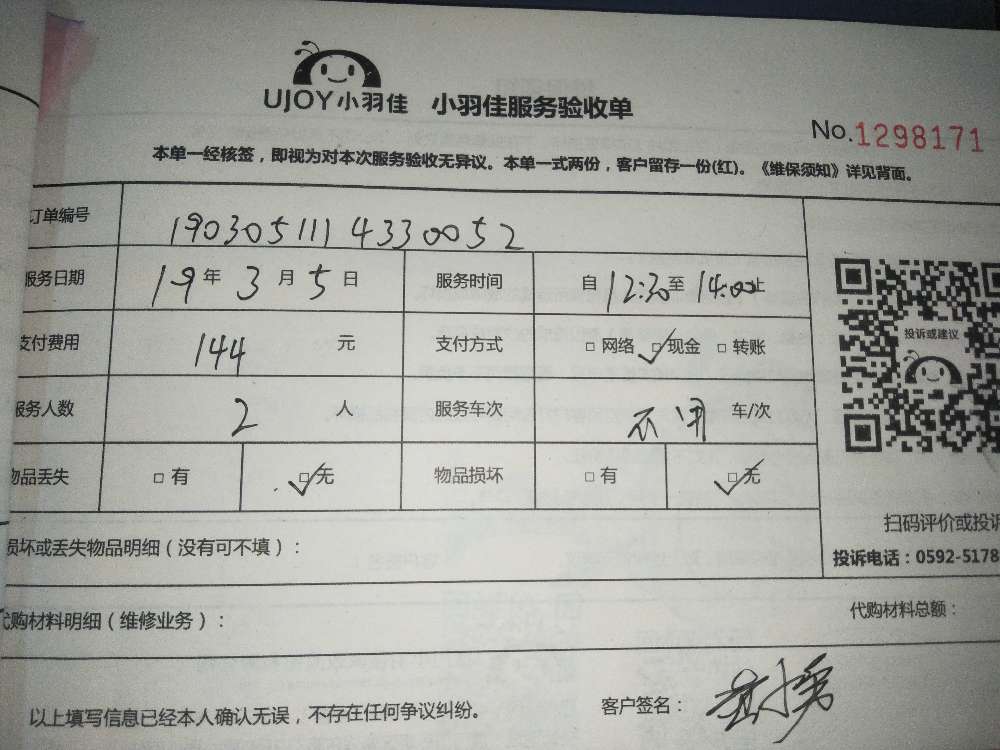 UJOY小羽佳 小羽佳服务验收单
No.1298171
本单一经核签，即视为对本次服务验收无异议。本单一式两份，客户留存一份(红)。《维保须知》详见背面。
订单编号 1903051114330052
服务日期 19年3月5日 服务时间 自12:30至14:00止
支付费用 144元 支付方式 □网络 ☑现金 □转账
服务人数 2人 服务车次 不用 车/次
物品丢失 □有 ☑无 物品损坏 □有 ☑无
投诉或建议
扫码评价或投诉
投诉电话：0592-5178
损坏或丢失物品明细（没有可不填）：
代购材料明细（维修业务）： 代购材料总额：
以上填写信息已经本人确认无误，不存在任何争议纠纷。 客户签名：